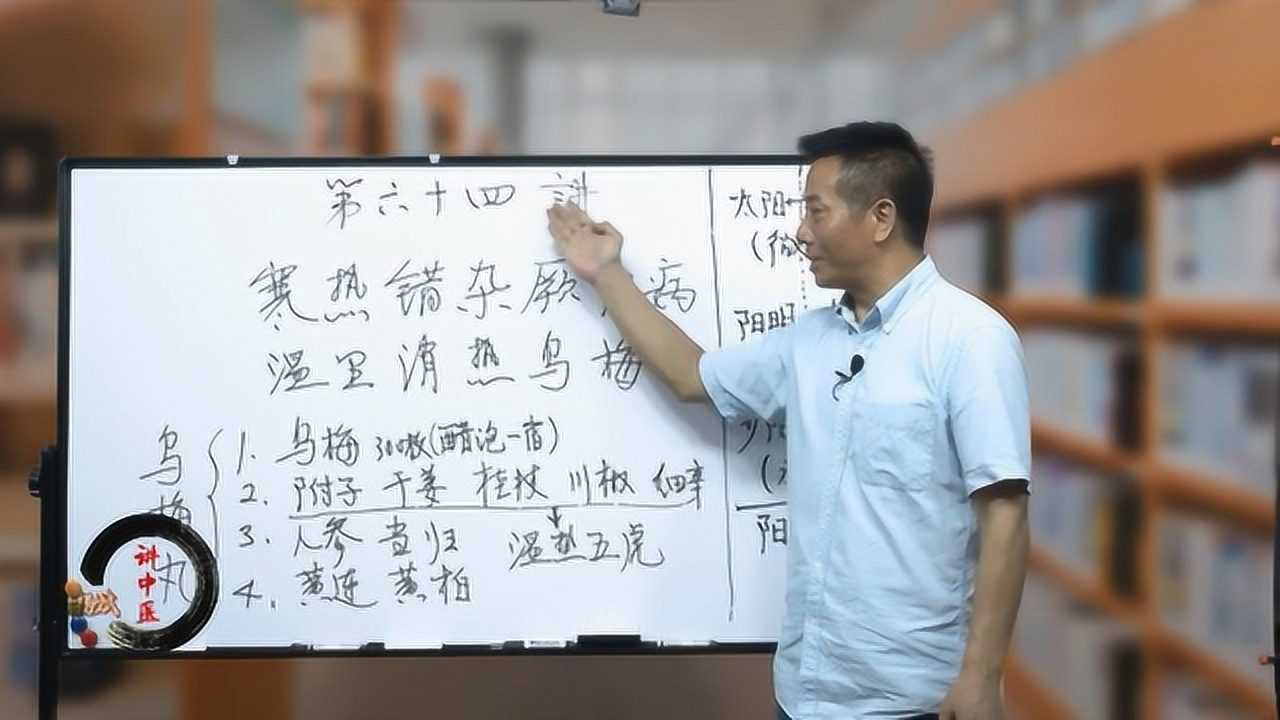 第六十四讲
寒热错杂厥 病
温里清热乌梅
乌梅丸
1. 乌梅 300枚(醋泡一宿)
2. 附子 干姜 桂枝 川椒 细辛
3. 人参 当归 温热五虎
4. 黄连 黄柏
太阳
(微
阳明
少阳
阳
讲中医